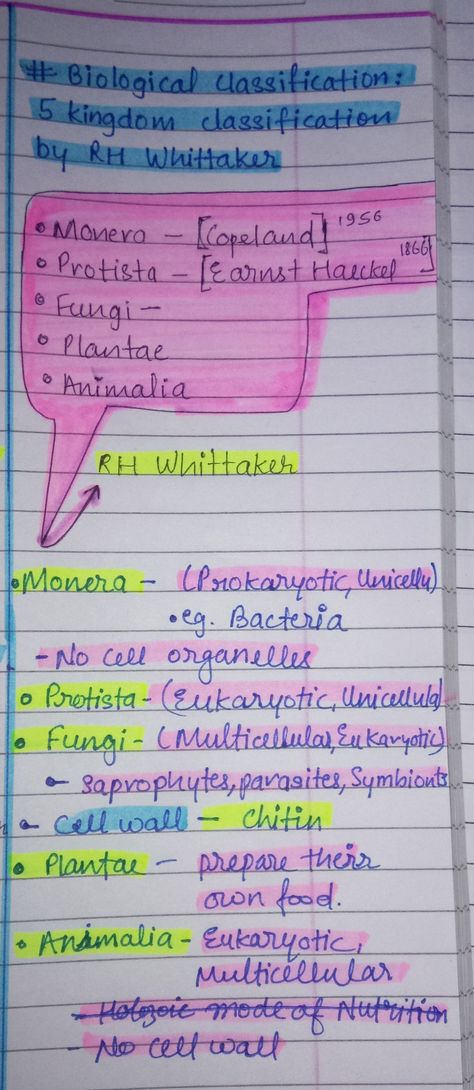 # Biological classification:
5 kingdom classification
by RH Whittaker
• Monera - [Copeland] 1956
• Protista - [Earnst Haeckel 1866]
• Fungi -
• Plantae
• Animalia
RH Whittaker
• Monera - (Prokaryotic, Unicellu)
• eg. Bacteria
- No cell organelles
• Protista - (Eukaryotic, Unicellula)
• Fungi - (Multicellular, Eukaryotic)
- saprophytes, parasites, Symbionts
- Cell wall - Chitin
• Plantae - prepare their
own food.
• Animalia - Eukaryotic,
Multicellular
- Holozoic mode of Nutrition
- No cell wall